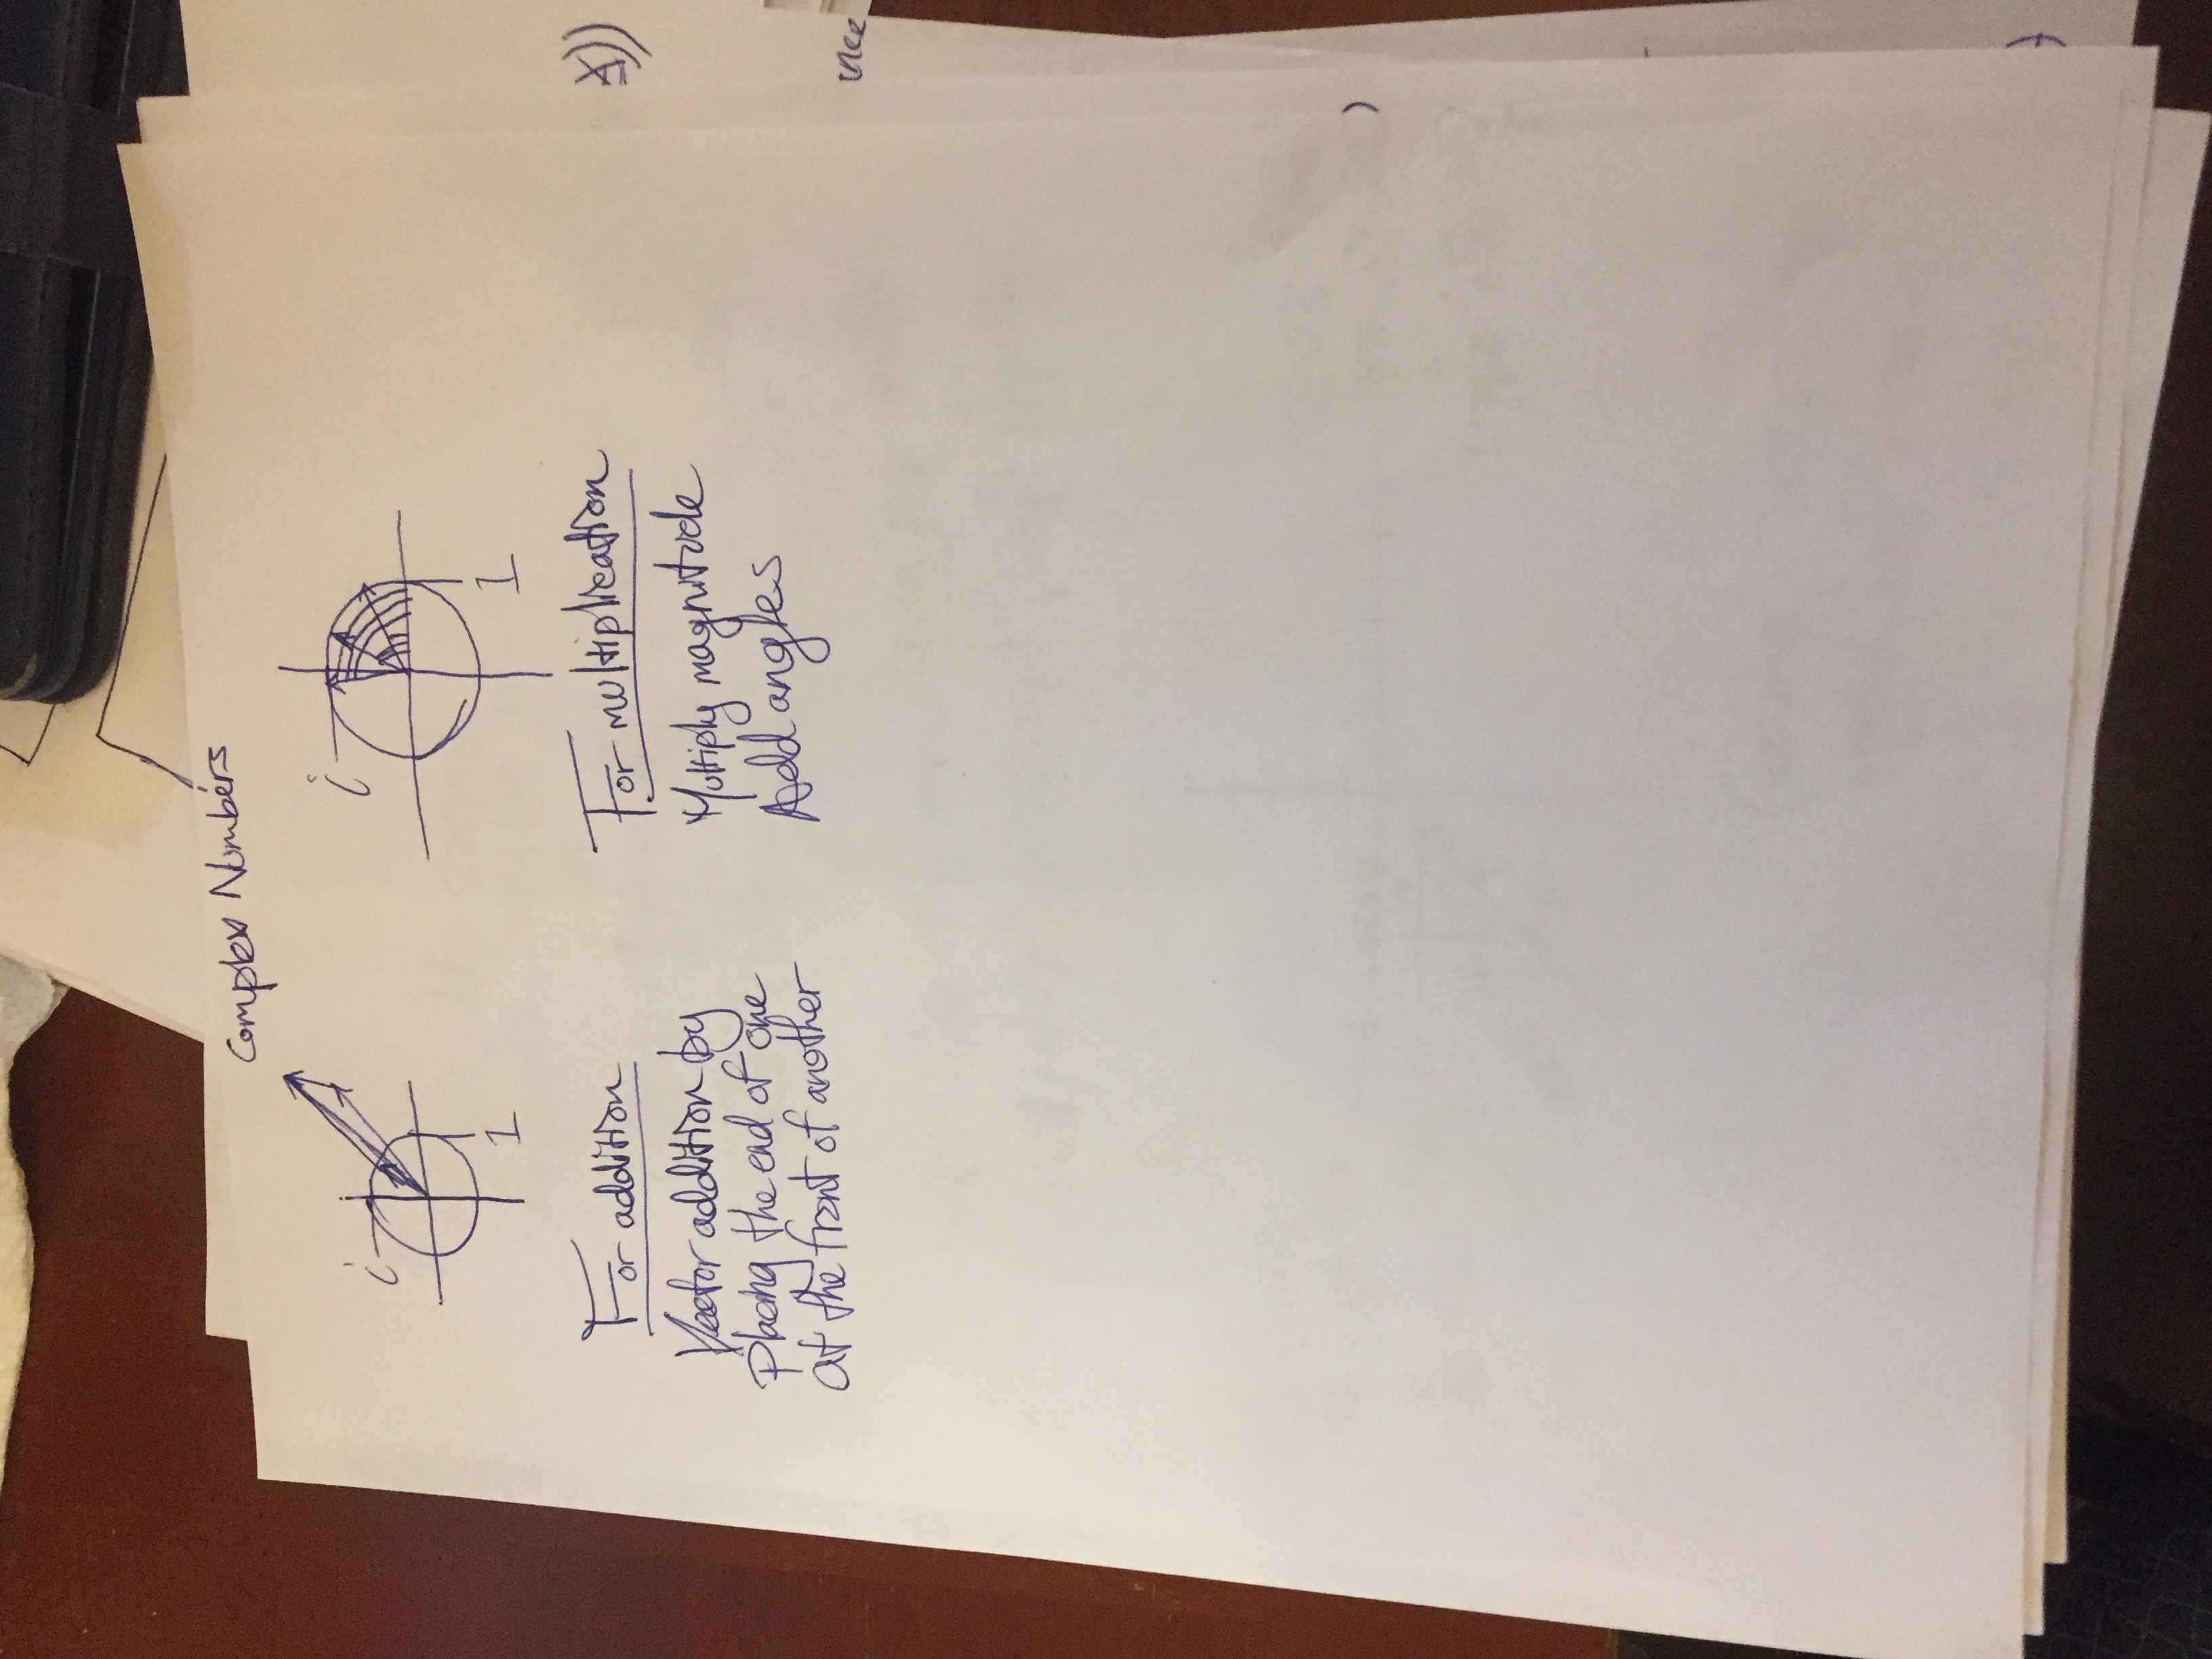 Complex Numbers
i
1
i
1
For addition
Vector addition by
placing the end of one
at the front of another
For multiplication
Multiply magnitude
Add angles